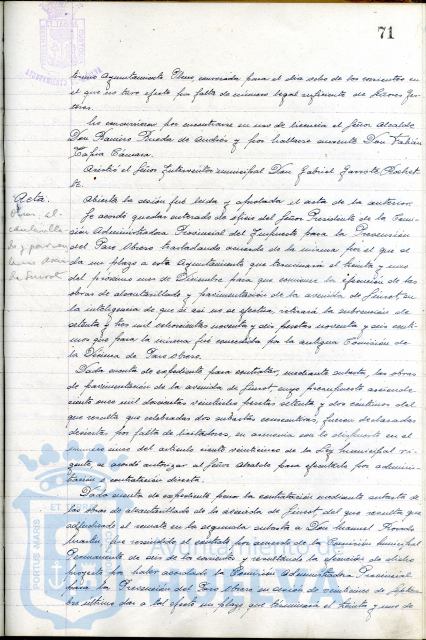 71
bimo Ayuntamiento Pleno, convocada para el día ocho de los corrientes en
el que no tuvo efecto por falta de número legal suficiente de Señores Ges-
tores.
No concurrieron por encontrarse en uso de licencia el Señor Alcalde
Don Ramiro Rueda de Andrés y por hallarse ausente Don Fabián
Tapia Cámara.
Asistió el Señor Interventor municipal Don Gabriel Garrote
Acta.
Abierta la sesión fue leída y aprobada el acta de la anterior.
Se acordó quedar enterado de oficio del Señor Presidente de la Comi-
sión Administradora Provincial del Impuesto para la Prevención
del Paro Obrero trasladando acuerdo de la misma por el que se
da un plazo a este Ayuntamiento que terminará el treinta y uno
del próximo mes de Diciembre para que comience la ejecución de las
obras de alcantarillado y pavimentación de la avenida de Gunrot en
la inteligencia de que si así no se efectua, retirará la subvención de
setenta y tres mil setecientas noventa y seis pesetas noventa y seis cénti-
mos que para la misma fué concedida por la antigua Comisión de
la Décima de Paro obrero.
Dada cuenta de expediente para contratar, mediante subasta, las obras
de pavimentación de la avenida de Gunrot cuyo presupuesto asciende
ciento once mil doscientas veintiseis pesetas setenta y dos céntimos del
que resulta que celebradas dos subastas consecutivas, fueron declaradas
desiertas por falta de licitadores, en armonía con lo dispuesto en el
número cinco del artículo ciento veinticinco de la Ley municipal vi-
gente, se acordó autorizar al Señor Alcalde para ejecutarlo por adminis-
tración o contratación directa.
Dada cuenta de expediente para la contratación mediante subasta de
las obras de alcantarillado de la avenida de Gunrot, del que resulta que
adjudicado el remate en la segunda subasta a Don Manuel
Martín fué rescindido el contrato por acuerdo de la Comisión municipal
Permanente de seis de la corriente, y resultando la ejecución de dicho
proyecto por haber acordado la Comisión Administradora Provincial
para la Prevención del Paro Obrero en sesión de veintinueve de Septiem-
bre último dar a tal efecto un plazo que terminará el treinta y uno de